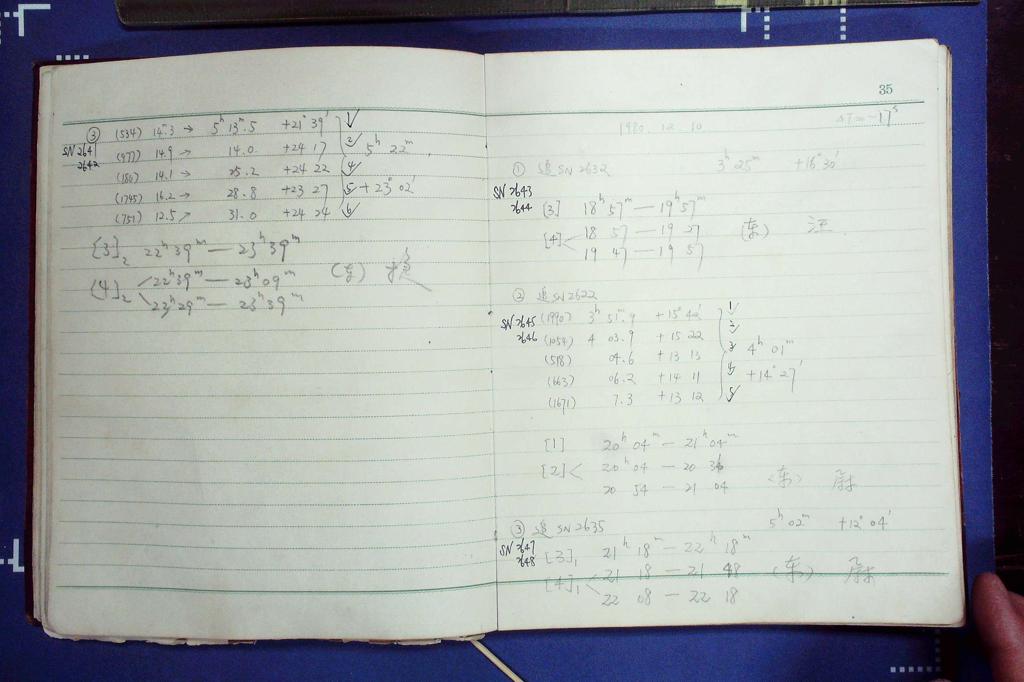 ③ (534) 14ᵐ.3 → 5ʰ 13ᵐ.5 +21° 39′ 1
SN 2641 (977) 14.9 → 14.0 +24 17 2 5ʰ 22ᵐ
2642 (180) 14.1 → 25.2 +24 22 4
(1745) 16.2 → 28.8 +23 27 5 +23° 02′
(751) 12.5 ↗ 31.0 +24 24 6
[3]₂ 22ʰ 39ᵐ — 23ʰ 39ᵐ
[4]₂ 22ʰ39ᵐ — 23ʰ 09ᵐ
23ʰ29ᵐ — 23ʰ 39ᵐ
35
ΔT = -17ˢ
1980. 12. 10
① 追 SN 2632 3ʰ 25ᵐ +16° 30′
SN 2643
2644 [3] 18ʰ 57ᵐ — 19ʰ 57ᵐ
[4] 18 57 — 19 27 (东) 汪
19 47 — 19 57
② 追 SN 2622
SN 2645 (1990) 3ʰ 51ᵐ.9 +15° 42′ 1
2646 (1054) 4 03.9 +15 22 2
(518) 04.6 +13 13 3 4ʰ 01ᵐ
(663) 06.2 +14 11 4 +14° 27′
(1671) 7.3 +13 12 5
[1] 20ʰ 04ᵐ — 21ʰ 04ᵐ
[2] 20ʰ 04 — 20 34
20 54 — 21 04 (东)
5ʰ 02ᵐ +12° 04′
③ 追 SN 2635
SN 2647
2648 [3]₁ 21ʰ 18ᵐ — 22ʰ 18ᵐ
[4]₁ 21 18 — 21 48 (东)
22 08 — 22 18